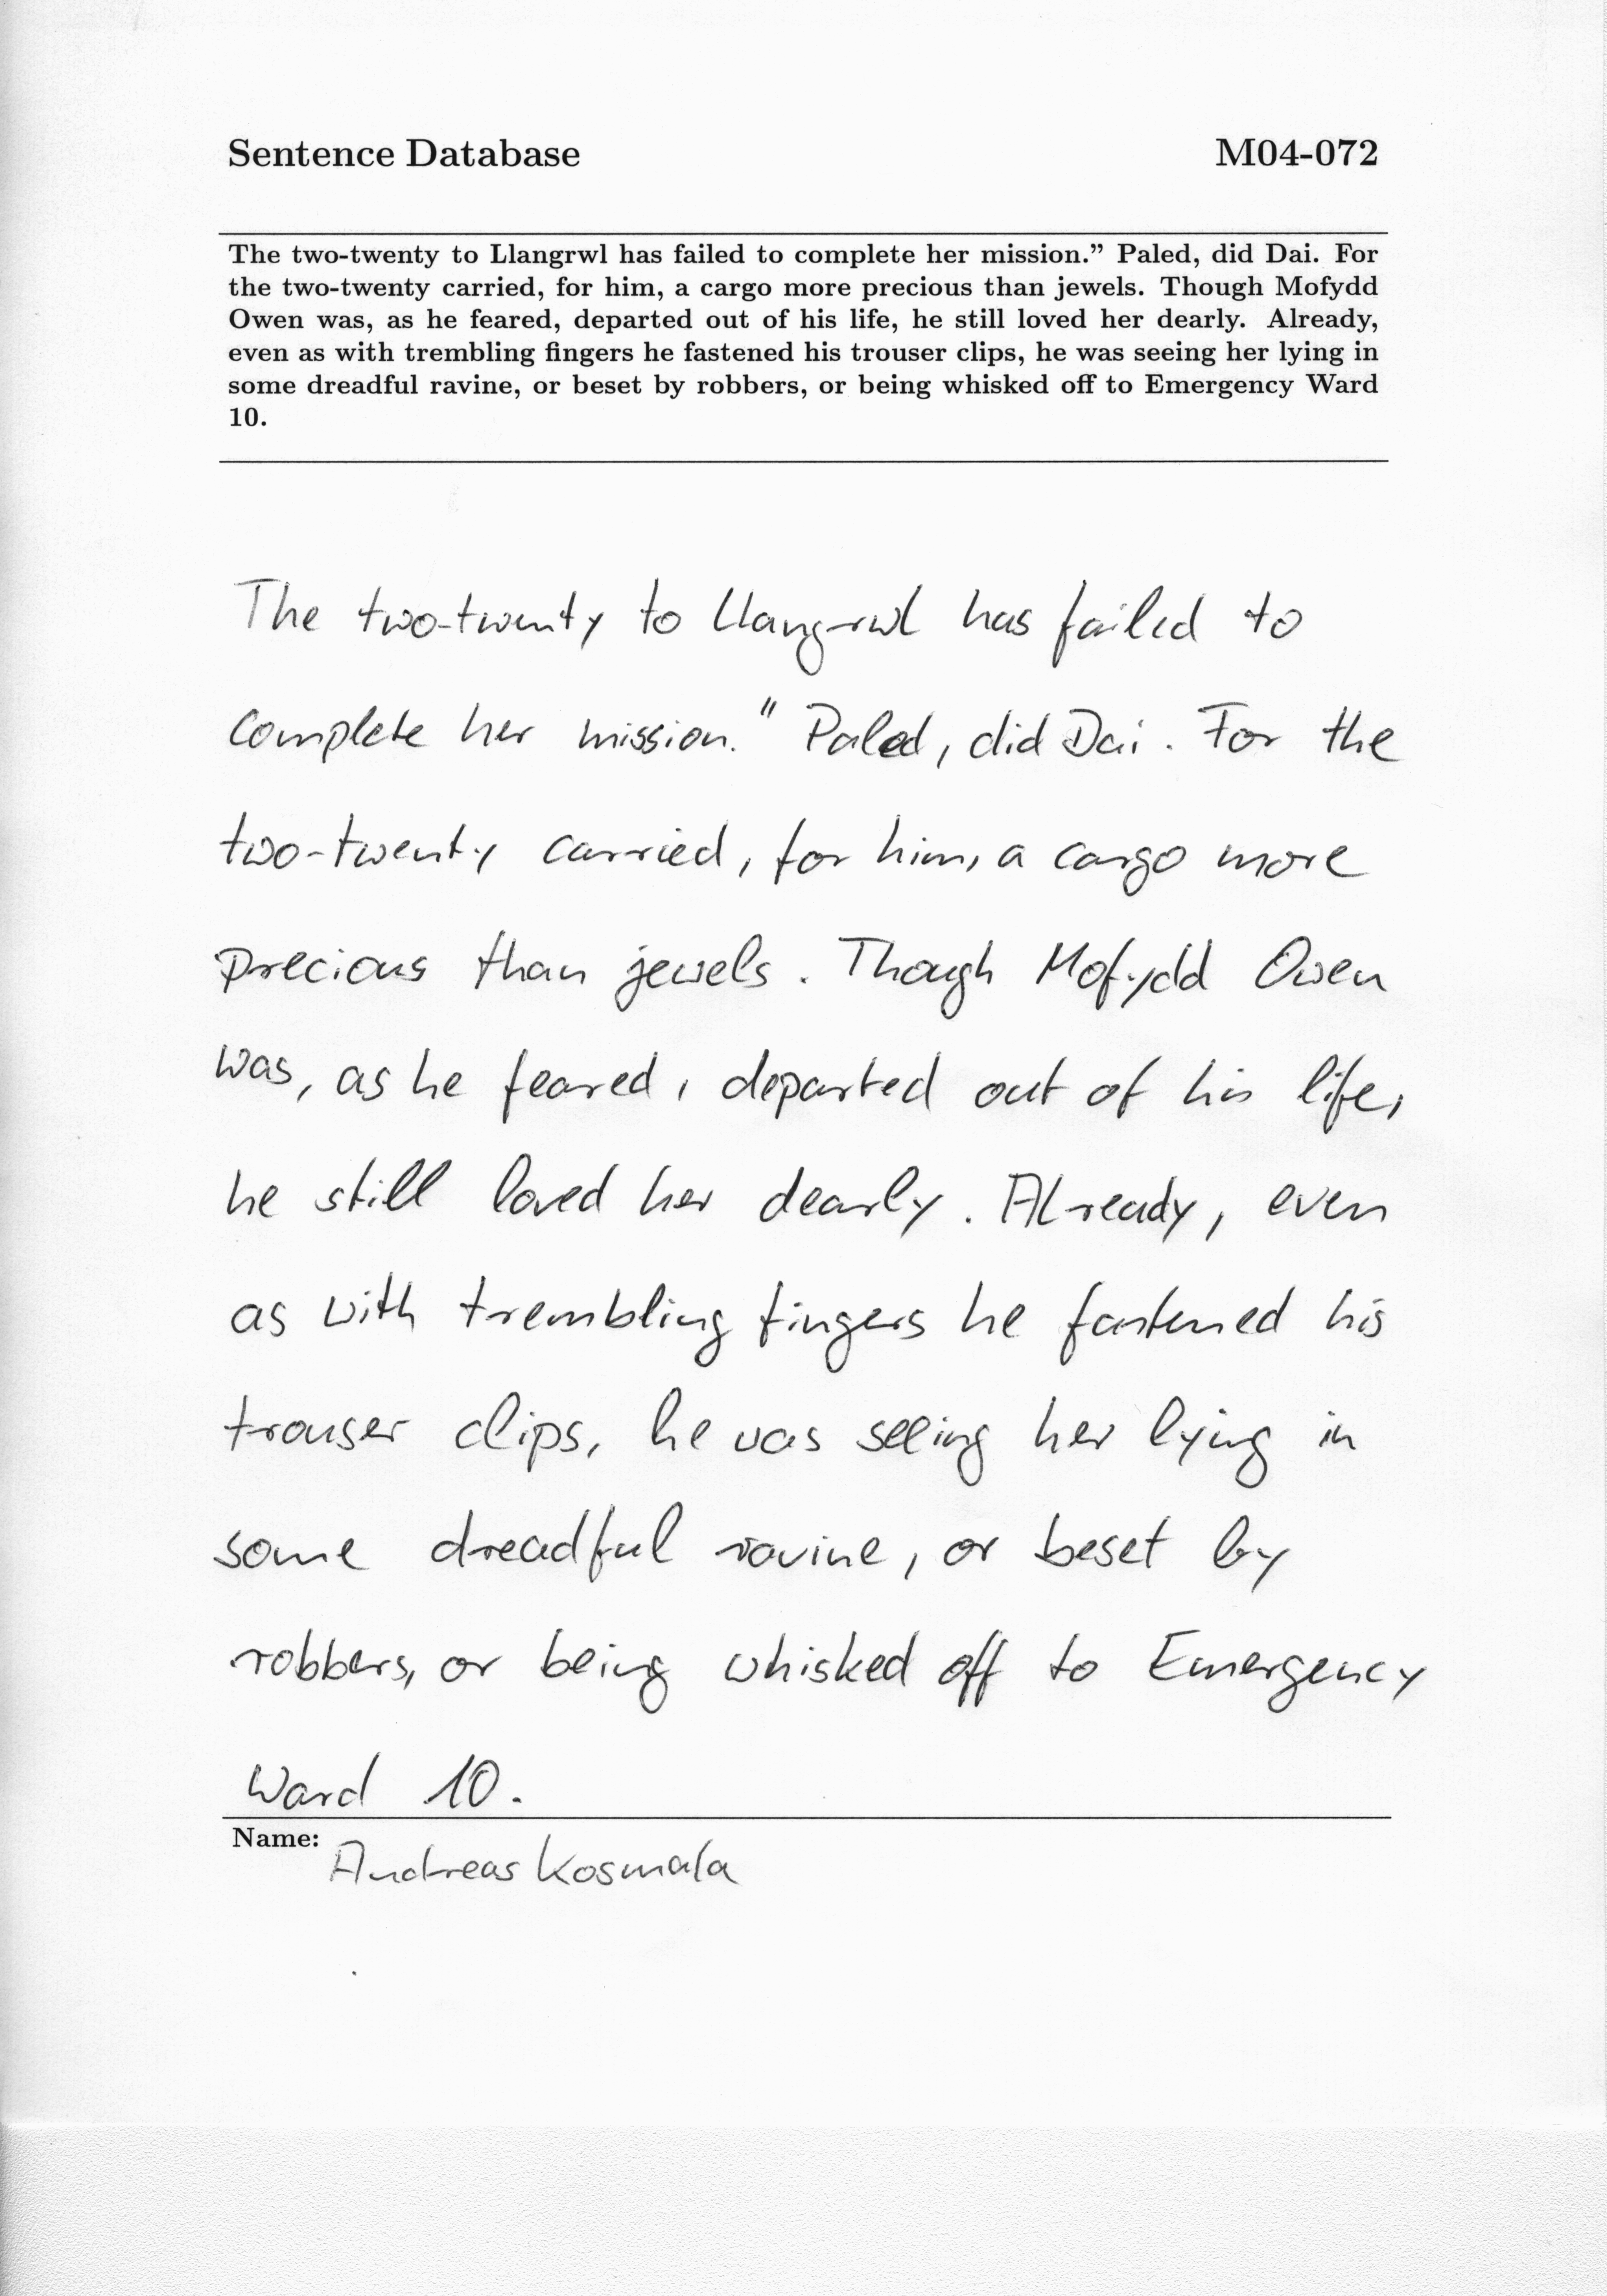 Sentence Database M04-072
The two-twenty to Llangrwl has failed to complete her mission.” Paled, did Dai. For
the two-twenty carried, for him, a cargo more precious than jewels. Though Mofydd
Owen was, as he feared, departed out of his life, he still loved her dearly. Already,
even as with trembling fingers he fastened his trouser clips, he was seeing her lying in
some dreadful ravine, or beset by robbers, or being whisked off to Emergency Ward
10.
The two-twenty to Llangrwl has failed to
complete her mission." Paled, did Dai. For the
two-twenty carried, for him, a cargo more
precious than jewels. Though Mofydd Owen
was, as he feared, departed out of his life,
he still loved her dearly. Already, even
as with trembling fingers he fastened his
trouser clips, he was seeing her lying in
some dreadful ravine, or beset by
robbers, or being whisked off to Emergency
Ward 10.
Name: Andreas Kosmala